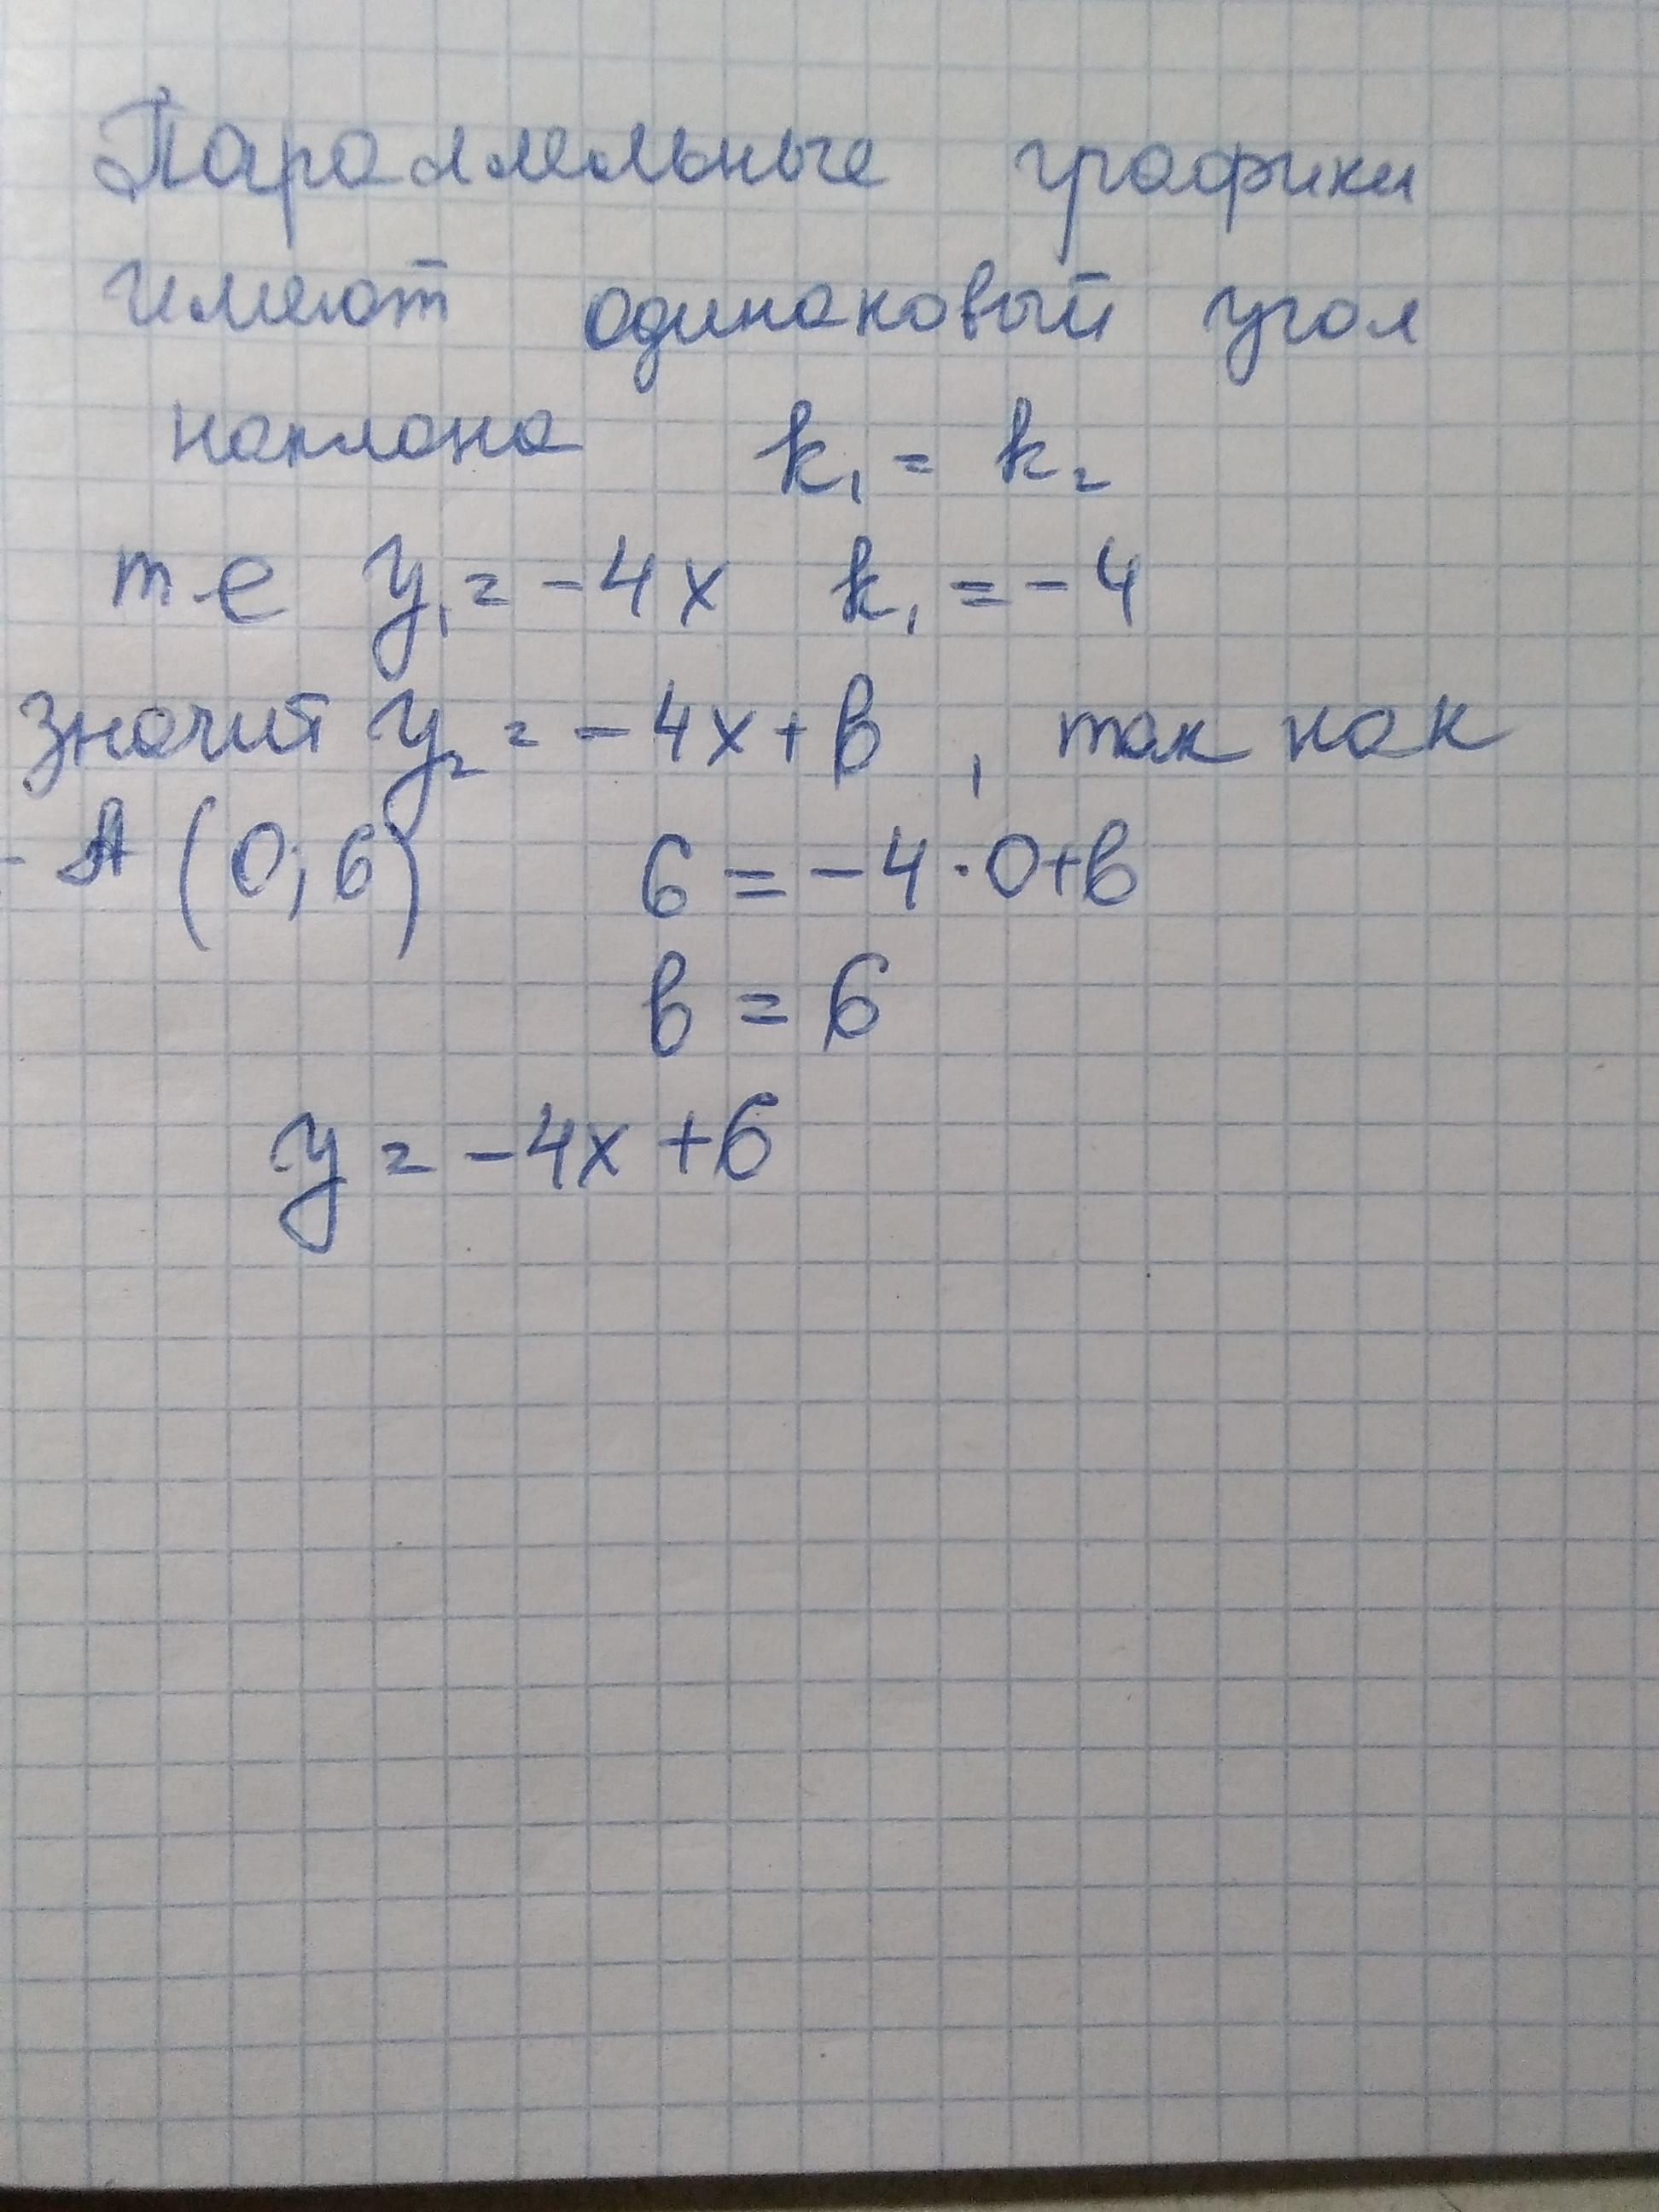 Параллельные графики
имеют одинаковый угол
наклона k₁ = k₂
т е y₁ = -4x k₁ = -4
значит y₂ = -4x + b , так как
A (0; 6) 6 = -4 · 0 + b
b = 6
y = -4x + 6